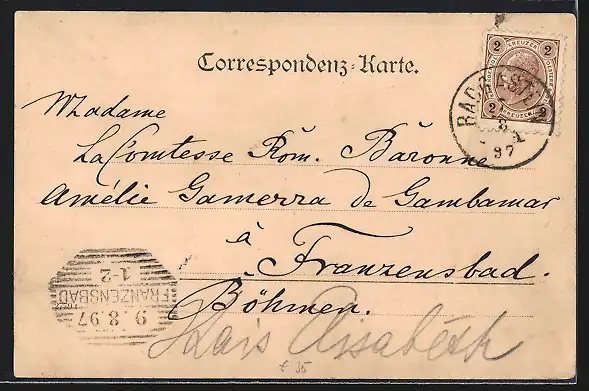 Correspondenz-Karte.
2 KREUZER 2
2 KREUZER 2
BAD
8
97
Madame
La Comtesse Röm. Baronne
Amélie Gamerra de Gambamar
à
Franzensbad.
Böhmen.
FRANZENSBAD
9.8.97
1-2
Elisabeth
€ 35